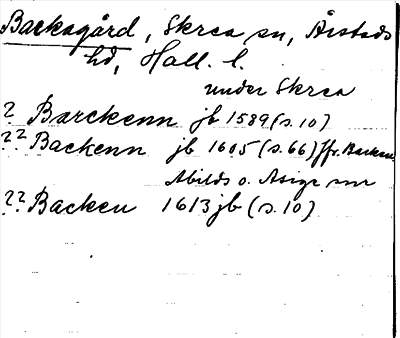 Backagård, Skrea sn, Årstads
hd, Hall. l.
under Skrea
? Barckenn jb 1589 (s. 10)
?? Backenn jb 1605 (s. 66) jfr. Backen
Abilds o. Asige snr
?? Backen 1613 jb (s. 10)